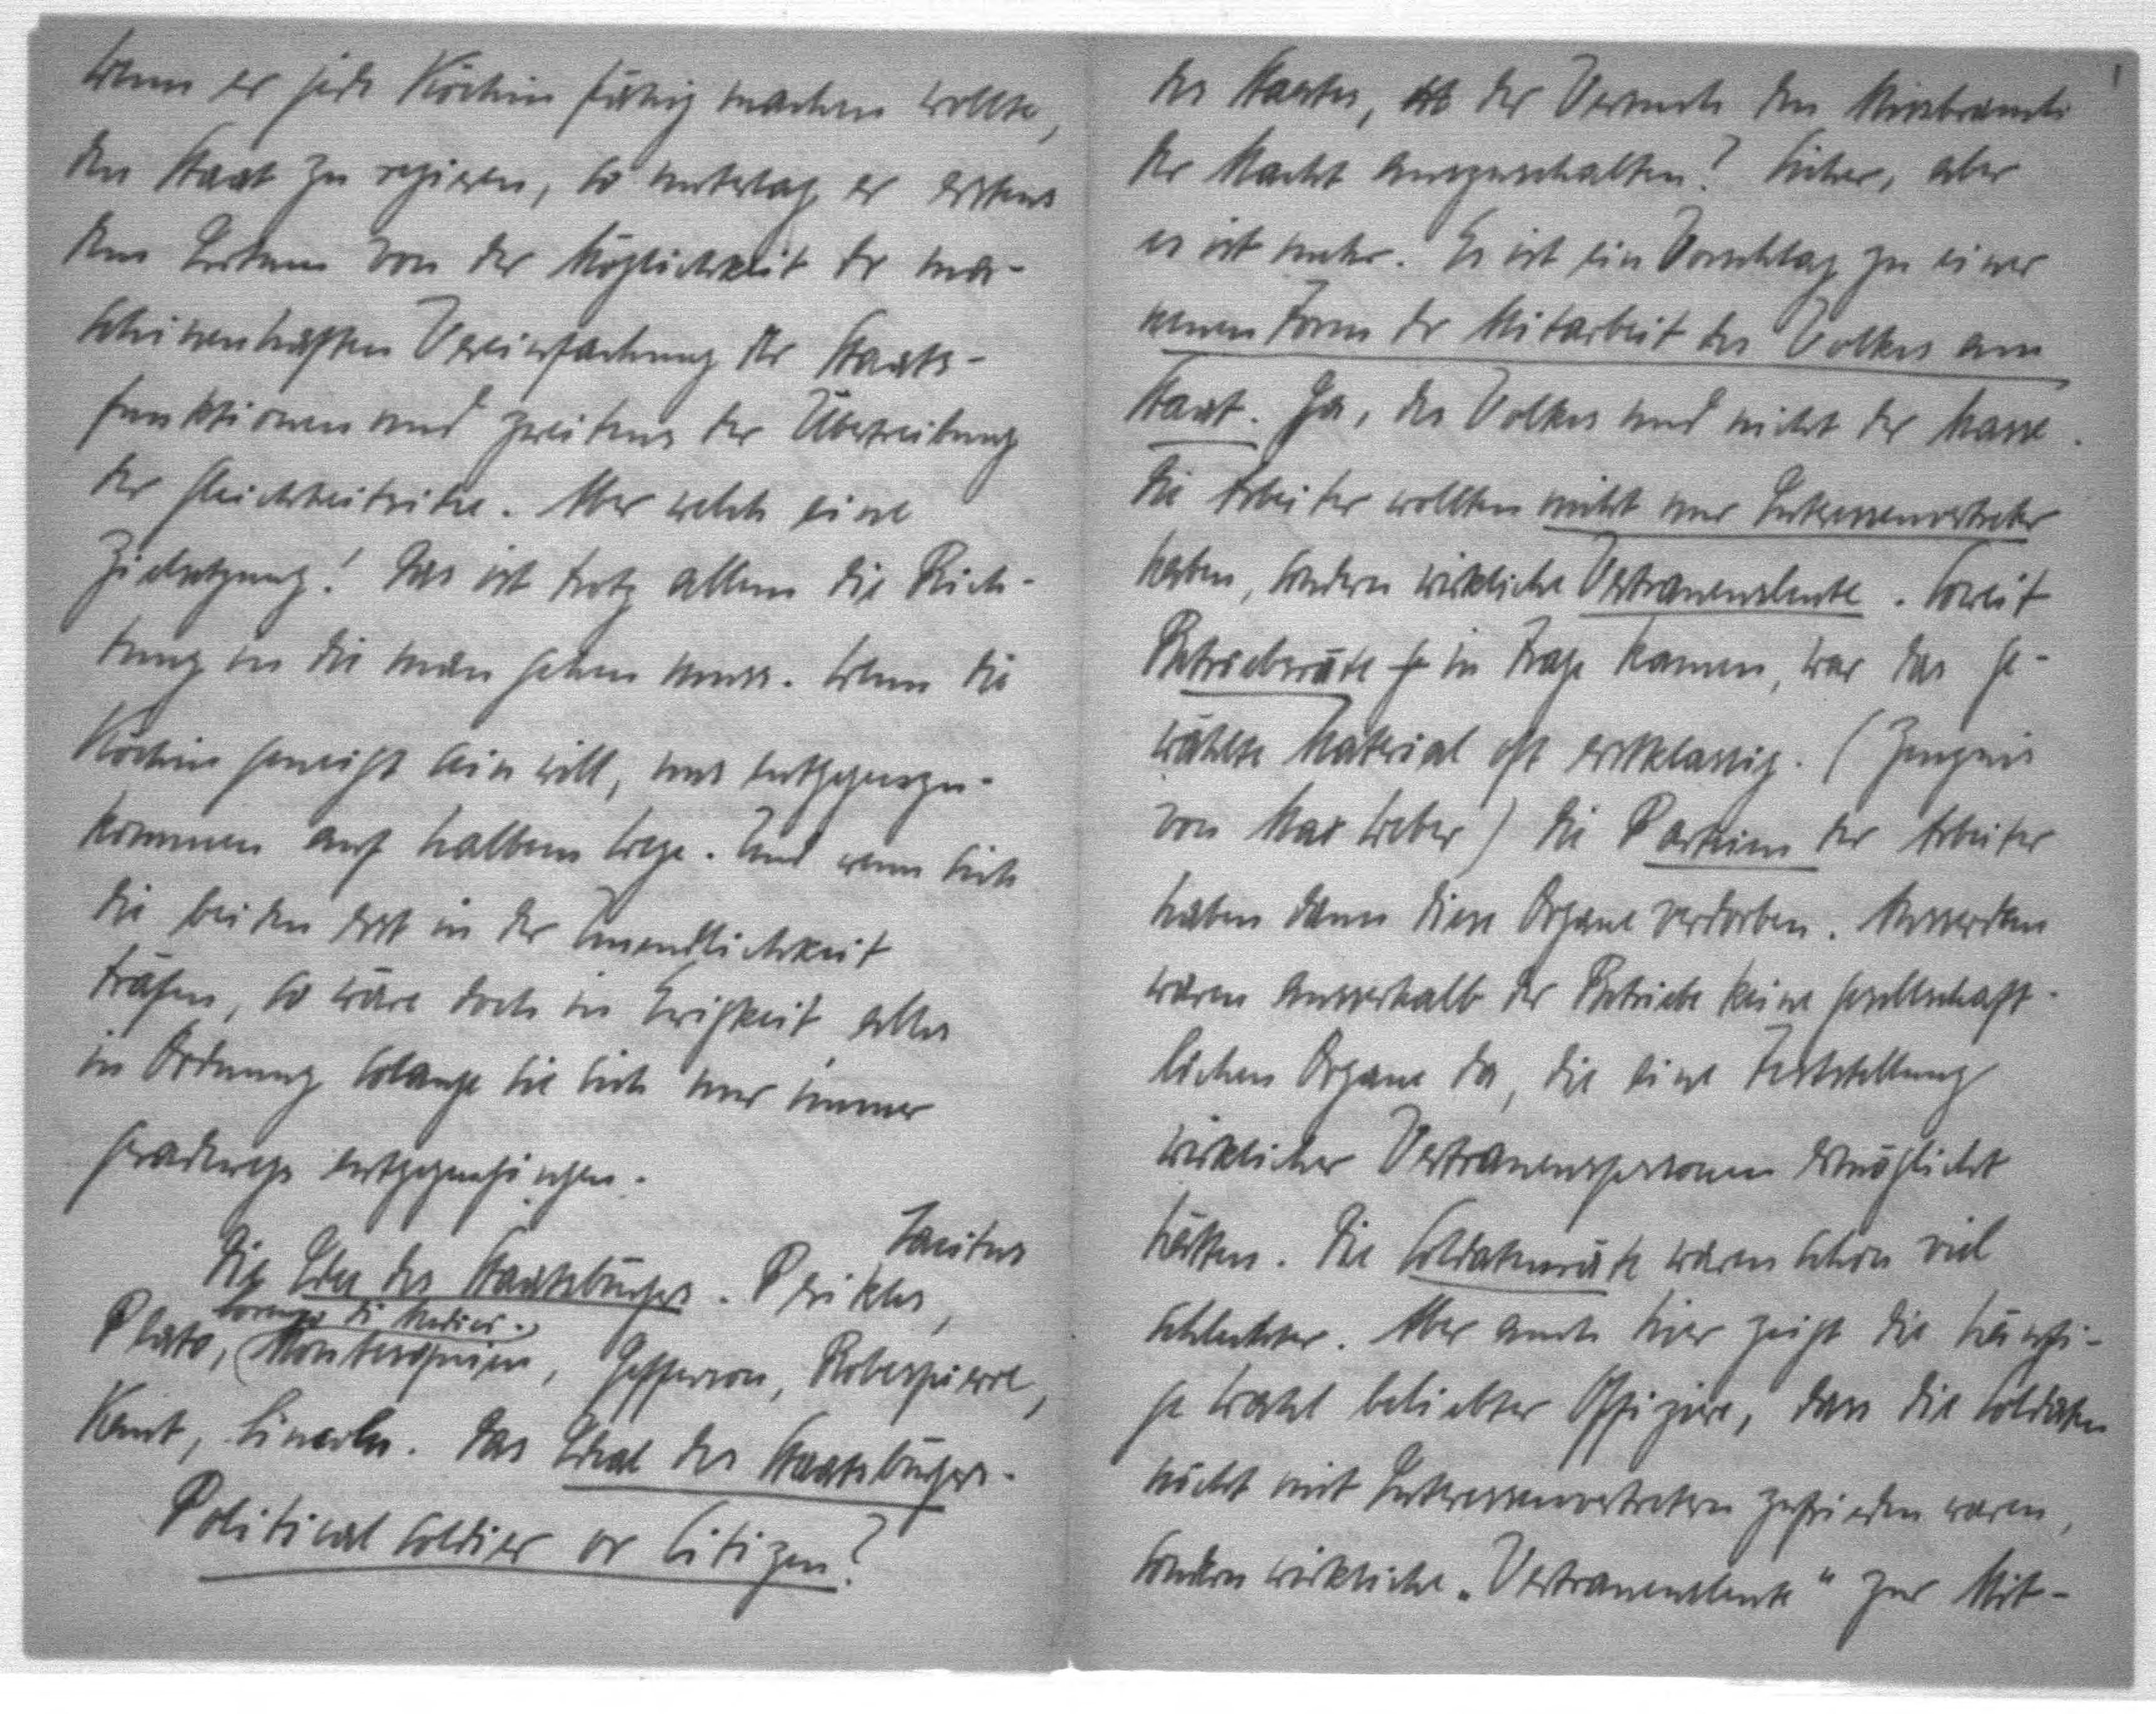 Wenn er jede Köchin fähig machen wollte,
den Staat zu regieren, so unterlag er erstens
dem Irrtum von der Möglichkeit der ma-
schinenhaften Vereinfachung der Staats-
funktionen und zweitens der Übertreibung
der Gleichheitsidee. Aber welch eine
Zielsetzung! Das ist trotz allem die Rich-
tung in die man gehen muss. Wenn die
Köchin geneigt sein will, uns entgegenzu-
kommen auf halbem Wege. Und wenn sich
die beiden erst in der Unendlichkeit
träfen, so wäre doch in Ewigkeit alles
in Ordnung solange sie sich nur immer
geradewegs entgegengingen.
Tacitus
Die Idee des Staatsbürgers. Perikles,
Lorenzo di Medici.
Plato, (Montesquieu, Jefferson, Robespierre,
Kant, Lincoln. Das Ideal des Staatsbürgers.
Political Soldier or Citizen?
des Staates, der Versuch den Missbrauch
der Macht auszuschalten? Sicher, aber
es ist mehr. Es ist ein Vorschlag zu einer
neuen Form der Mitarbeit des Volkes am
Staat. Ja, des Volkes und nicht der Masse.
Die Arbeiter wollten nicht nur Interessenvertreter
haben, sondern wirkliche Vertrauensleute. Soweit
Betriebsräte in Frage kamen, war das ge-
wählte Material oft erstklassig. (Zeugnis
von Max Weber) Die Parteien der Arbeiter
haben dann diese Organe verdorben. Ausserdem
waren ausserhalb der Betriebe keine gesellschaft-
lichen Organe da, die eine Feststellung
wirklicher Vertrauenspersonen ermöglicht
hätten. Die Soldatenräte waren schon viel
schlechter. Aber auch hier zeigt die häufi-
ge Wahl beliebter Offiziere, dass die Soldaten
nicht mit Interessenvertretern zufrieden waren,
sondern wirkliche „Vertrauensleute" zur Mit-